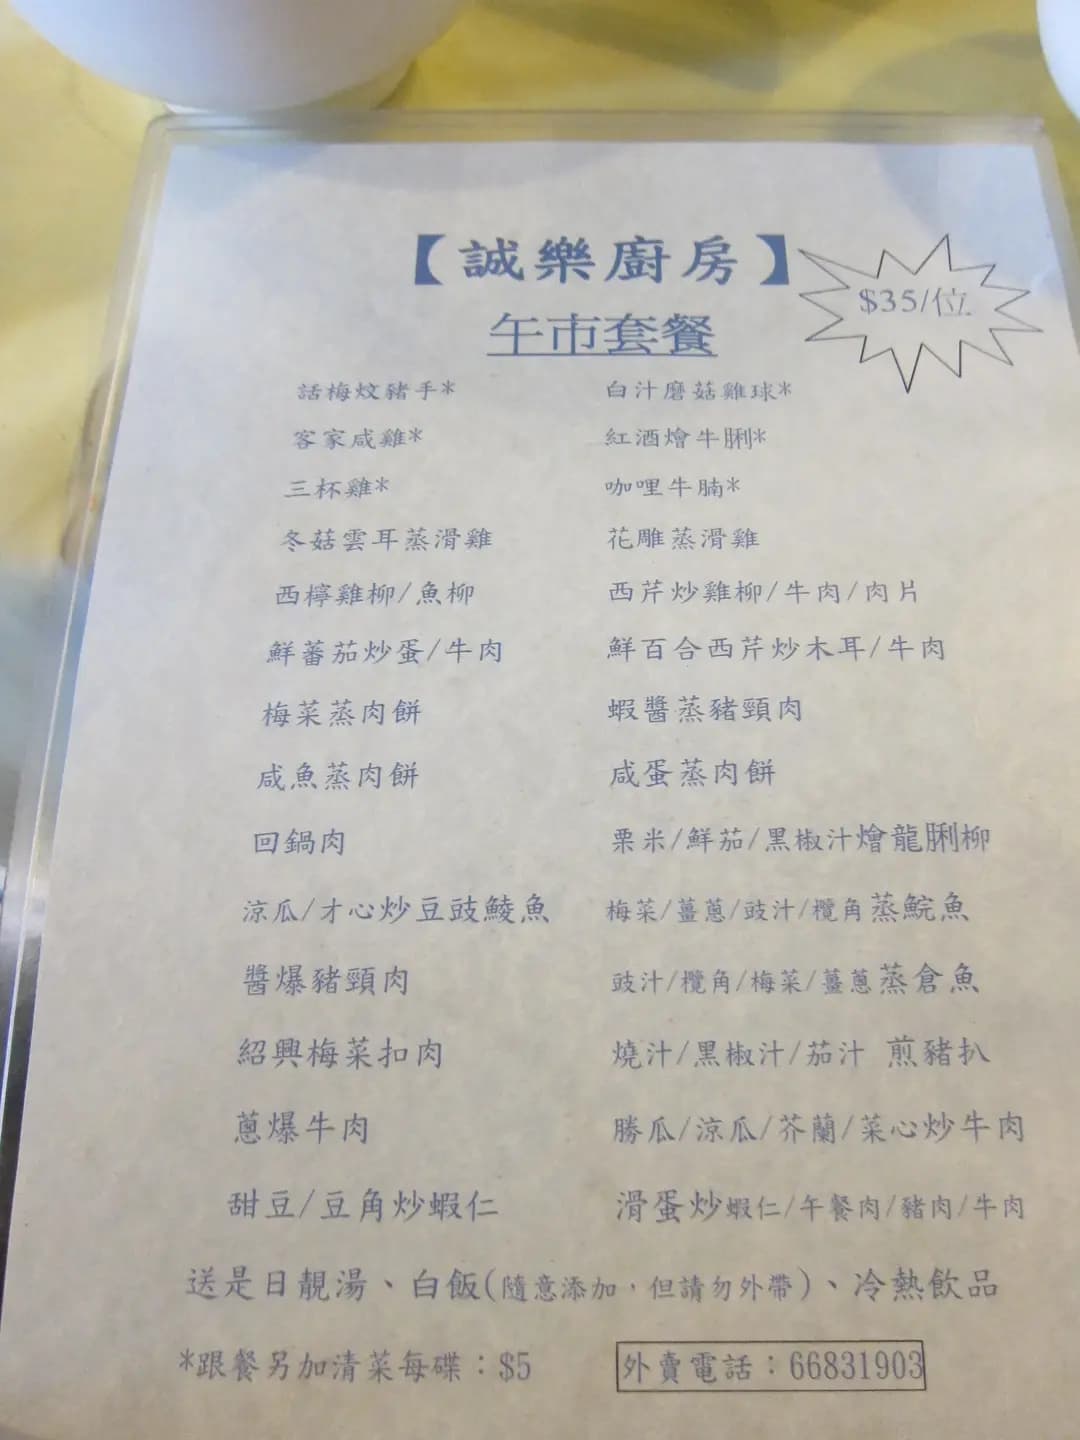 【誠樂廚房】
$35/位
午市套餐
話梅炆豬手*
白汁磨菇雞球*
客家咸雞*
紅酒燴牛脷*
三杯雞*
咖哩牛腩*
冬菇雲耳蒸滑雞
花雕蒸滑雞
西檸雞柳/魚柳
西芹炒雞柳/牛肉/肉片
鮮蕃茄炒蛋/牛肉
鮮百合西芹炒木耳/牛肉
梅菜蒸肉餅
蝦醬蒸豬頸肉
咸魚蒸肉餅
咸蛋蒸肉餅
回鍋肉
栗米/鮮茄/黑椒汁燴龍脷柳
涼瓜/才心炒豆豉鯪魚
梅菜/薑蔥/豉汁/欖角蒸鯇魚
醬爆豬頸肉
豉汁/欖角/梅菜/薑蔥蒸倉魚
紹興梅菜扣肉
燒汁/黑椒汁/茄汁 煎豬扒
蔥爆牛肉
勝瓜/涼瓜/芥蘭/菜心炒牛肉
甜豆/豆角炒蝦仁
滑蛋炒蝦仁/午餐肉/豬肉/牛肉
送是日靚湯、白飯(隨意添加,但請勿外帶)、冷熱飲品
*跟餐另加清菜每碟：$5
外賣電話：66831903